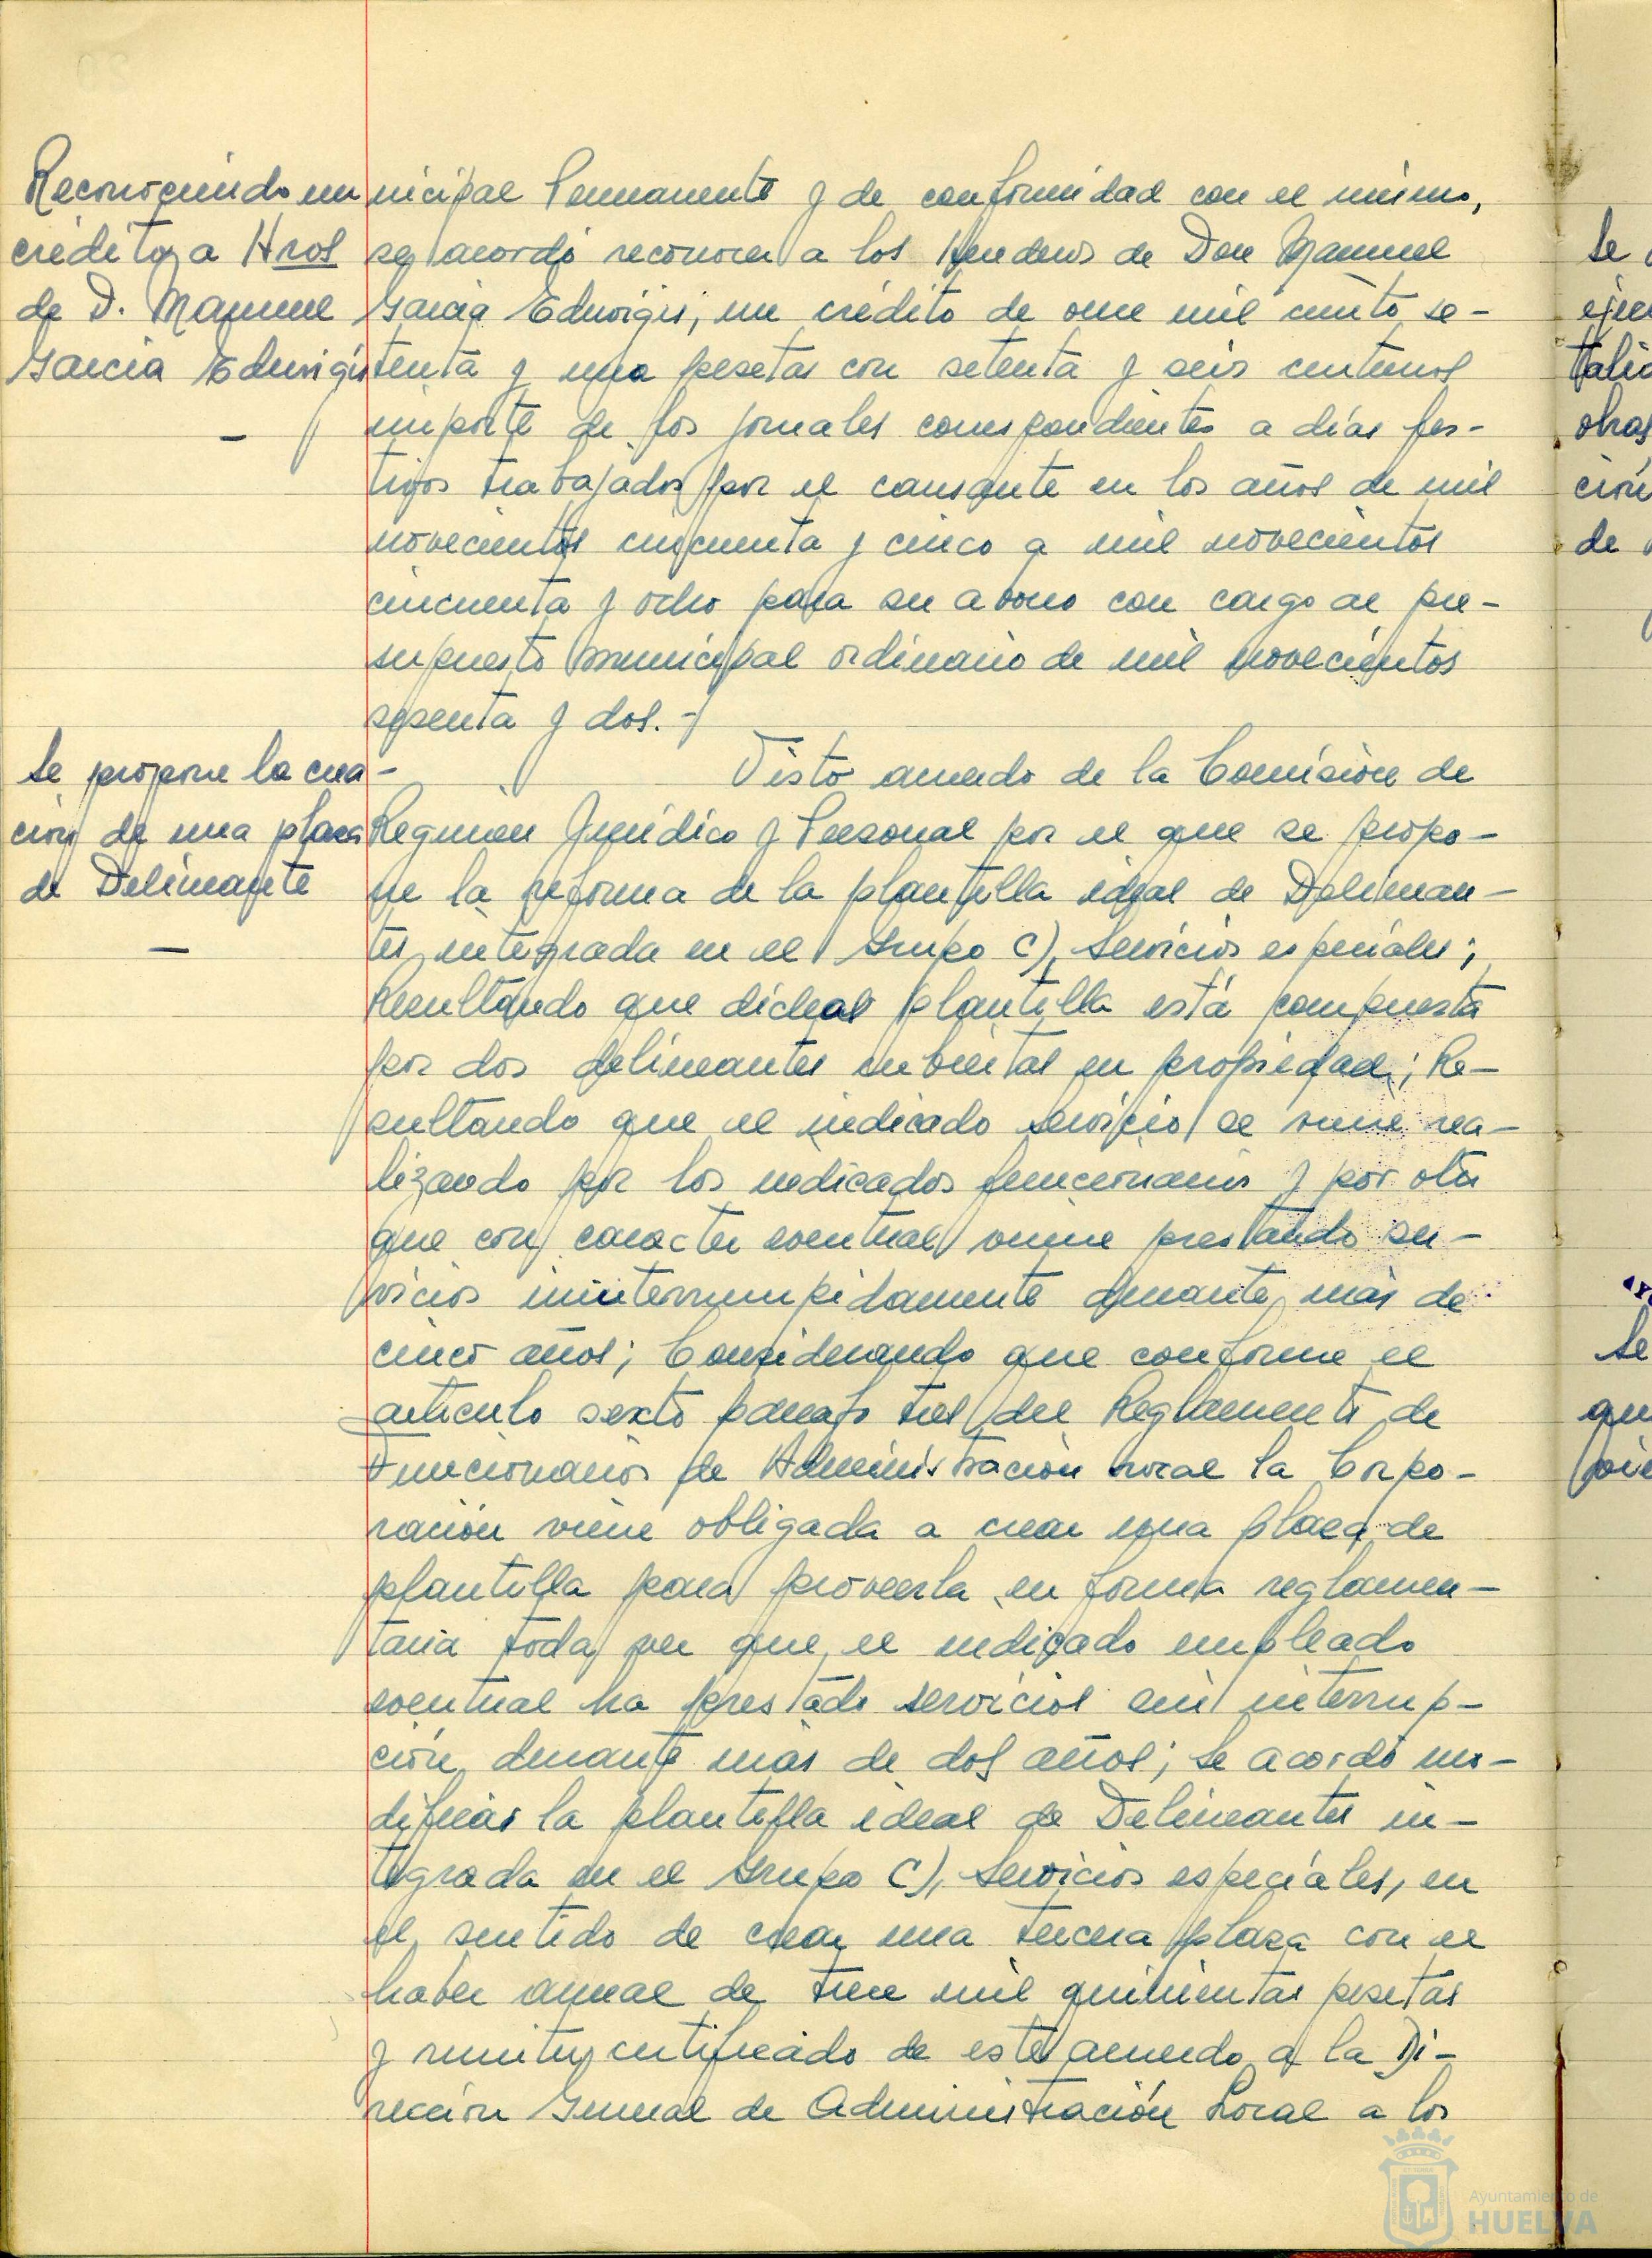 Reconociendo un
crédito a Hros
de D. Manuel
García Eduvigis
nicipal Permanente y de conformidad con el mismo,
se acordó reconocer a los Herederos de Don Manuel
García Eduvigis, un crédito de once mil ciento se-
tenta y una pesetas con setenta y seis céntimos
importe de los jornales correspondientes a días fes-
tivos trabajados por el causante en los años de mil
novecientos cincuenta y cinco a mil novecientos
cincuenta y ocho para su abono con cargo al pre-
supuesto municipal ordinario de mil novecientos
sesenta y dos.-
Se propone la crea-
ción de una plaza
de Delineante
Visto acuerdo de la Comisión de
Regimen Jurídico y Personal por el que se propo-
ne la reforma de la plantilla ideal de Delinean-
tes integrada en el Grupo C), Servicios especiales;
Resultando que dicha plantilla está compuesta
por dos delineantes cubiertas en propiedad; Re-
sultando que el indicado servicio se viene rea-
lizando por los indicados funcionarios y por otro
que con caracter eventual viene prestando ser-
vicios ininterrumpidamente durante más de
cinco años; Considerando que conforme el
artículo sexto párrafo tres del Reglamento de
Funcionarios de Administración Local la Corpo-
ración viene obligada a crear una plaza de
plantilla para proveerla en forma reglamen-
taria toda vez que el indicado empleado
eventual ha prestado servicios sin interrup-
ción durante más de dos años; Se acordó mo-
dificar la plantilla ideal de Delineantes in-
tegrada en el Grupo C), Servicios especiales, en
el sentido de crear una tercera plaza con el
haber anual de trece mil quinientas pesetas
y remitir certificado de este acuerdo a la Di-
rección General de Administración Local a los
Se
obras
ción
de
Se
Ayuntamiento de
HUELVA